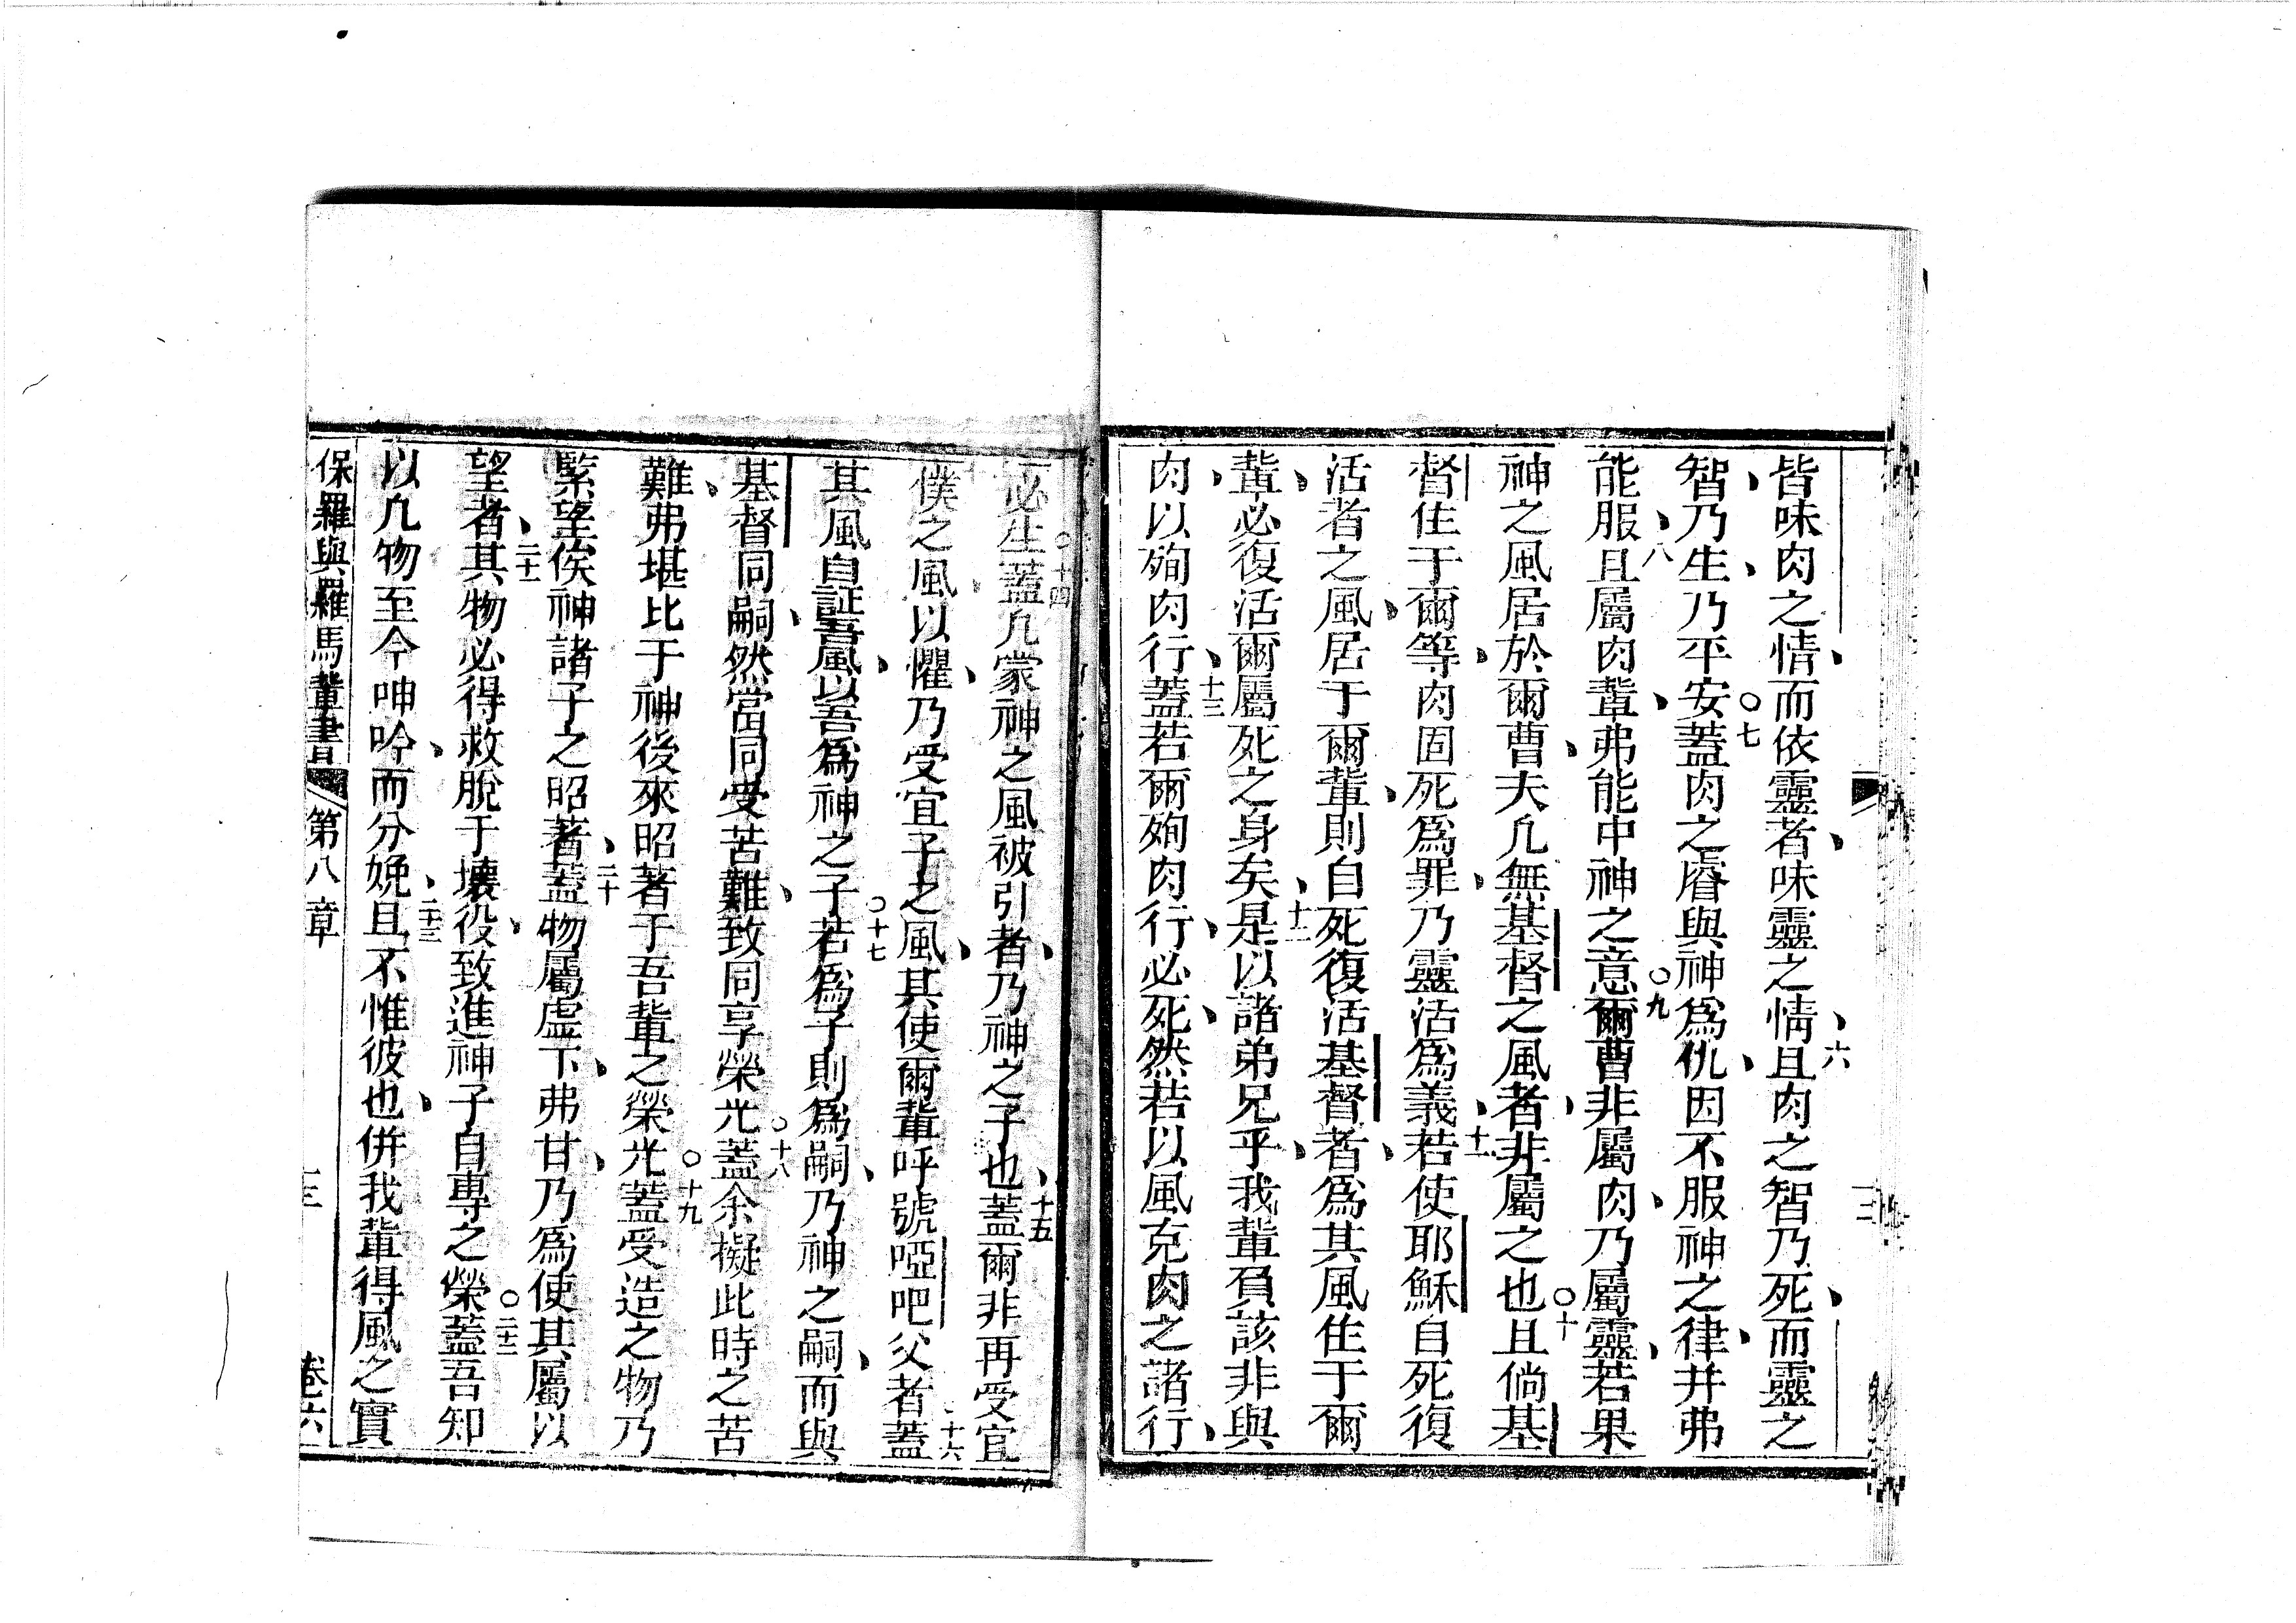 皆味肉之情、而依靈者、味靈之情、六且肉之智乃死、而靈之
智、乃生、乃平安○七蓋肉之睿與神爲仇、因不服神之律、并弗
能服、八且屬肉輩、弗能中神之意○九爾曹非屬肉、乃屬靈、若果
神之風居於爾曹、夫凡無基督之風者、非屬之也○十且倘基
督住于爾等、肉固死爲罪、乃靈活爲義、十一若使耶穌自死復
活者之風、居于爾輩、則自死復活基督者、爲其風住于爾
輩、必復活爾屬死之身矣、十二是以諸弟兄乎、我輩負該非與
肉、以殉肉行、十三蓋若爾殉肉行、必死、然若以風克肉之諸行、
必生○十四蓋凡蒙神之風被引者、乃神之子也、十五蓋爾非再受宜
僕之風以懼、乃受宜子之風、其使爾輩呼號啞吧父者、十六蓋
其風自証吾風、以吾爲神之子○十七若爲子則爲嗣、乃神之嗣、而與
基督同嗣、然當同受苦難、致同享榮光○十八蓋余擬此時之苦
難、弗堪比于神後來昭著于吾輩之榮光○十九蓋受造之物乃
緊望俟神諸子之昭著、二十蓋物屬虛下、弗甘、乃爲使其屬以
望者、二十一其物必得救脫于壞役、致進神子自專之榮○二十二蓋吾知
以凡物至今呻吟、而分娩、二十三且不惟彼也、併我輩得風之實
保羅與羅馬輩書 第八章 三 卷六